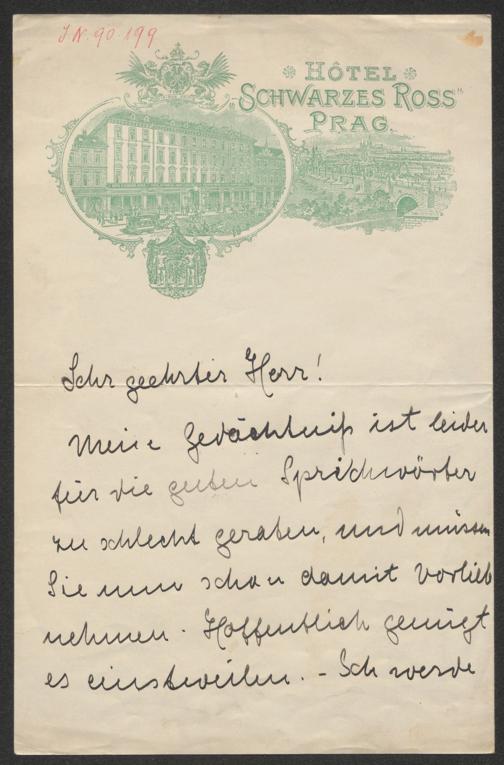 J.N. 90.199
HÔTEL
„SCHWARZES ROSS"
PRAG.
Sehr geehrter Herr!
Meine Gedächtniß ist leider
für die guten Sprichwörter
zu schlecht geraten, und müssen
Sie nun schon damit vorlieb
nehmen. Hoffentlich genügt
es einstweilen. – Ich werde